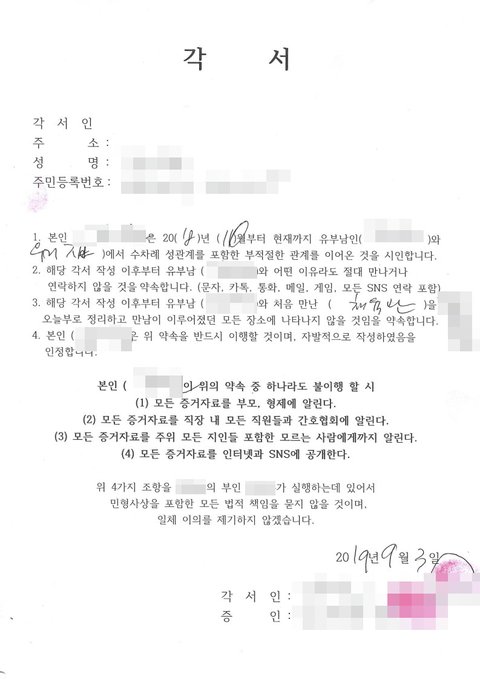 각 서
각 서 인
주 소 :
성 명 :
주민등록번호 :
1. 본인 은 20( )년 ( )월부터 현재까지 유부남인( )와
( )에서 수차례 성관계를 포함한 부적절한 관계를 이어온 것을 시인합니다.
2. 해당 각서 작성 이후부터 유부남 ( )와 어떤 이유라도 절대 만나거나
연락하지 않을 것을 약속합니다. (문자, 카톡, 통화, 메일, 게임, 모든 SNS 연락 포함)
3. 해당 각서 작성 이후부터 유부남 ( )와 처음 만난 ( )을
오늘부로 정리하고 만남이 이루어졌던 모든 장소에 나타나지 않을 것임을 약속합니다.
4. 본인 ( 은 위 약속을 반드시 이행할 것이며, 자발적으로 작성하였음을
인정합니다.
본인 ( )이 위의 약속 중 하나라도 불이행 할 시
(1) 모든 증거자료를 부모, 형제에 알린다.
(2) 모든 증거자료를 직장 내 모든 직원들과 간호협회에 알린다.
(3) 모든 증거자료를 주위 모든 지인들 포함한 모르는 사람에게까지 알린다.
(4) 모든 증거자료를 인터넷과 SNS에 공개한다.
위 4가지 조항을 의 부인 가 실행하는데 있어서
민형사상을 포함한 모든 법적 책임을 묻지 않을 것이며,
일체 이의를 제기하지 않겠습니다.
2019년 9월 3일
각 서 인 :
증 인 :